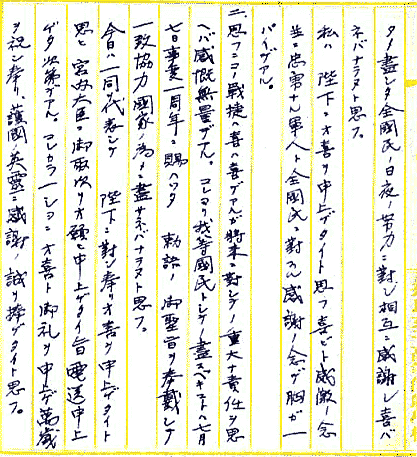 タノ盡シタ全國民ノ日夜ノ努力ニ對シ相互ニ感謝シ喜バ
ネバナラヌト思フ。
私ハ 陛下ニオ喜ヲ申上ゲタイト思フ喜ビト感激ノ念
並ニ忠勇ナル軍人ト全國民ニ對スル感謝ノ念デ胸ガ一
パイデアル。
二、思フニコノ戰捷ノ喜ハ喜デアルガ將来ニ對シテノ重大ナ責任ヲ思
ヘバ感慨無量デアル。コレヨリ我等國民トシテ盡スベキコトハ七月
七日事変一周年ニ賜ハツタ 勅語ノ御聖旨ヲ奉戴シテ
一致協力國家ノ為ニ盡サネバナラヌト思フ。
今日ハ一同代表シテ 陛下ニ對シ奉リオ喜ヲ申上ゲタイト
思ヒ宮内大臣ニ御取次ヲオ願ヒ申上ゲタイ旨電送申上
ゲタ次第デアル。コレカラ一ショニオ喜ト御礼ヲ申上ゲ萬歳
ヲ祝シ奉リ、護國ノ英霊ニ感謝ノ誠ヲ捧ゲタイト思フ。